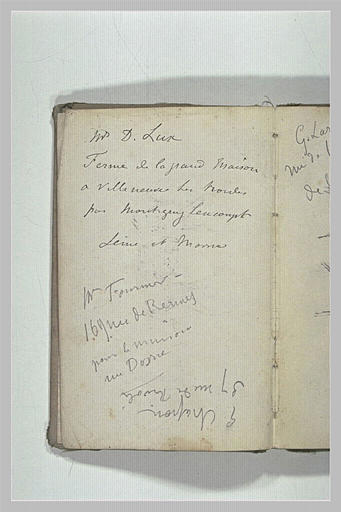 Mr D. Lux
Ferme de la grand maison
a Villeneuve les Bordes
par Montigny Lencoupt
Seine et Marne
Mr Fournier -
169 rue de Rennes
pour la maison
rue
G Chapron
37 rue de Rivoli
G. Lar
de